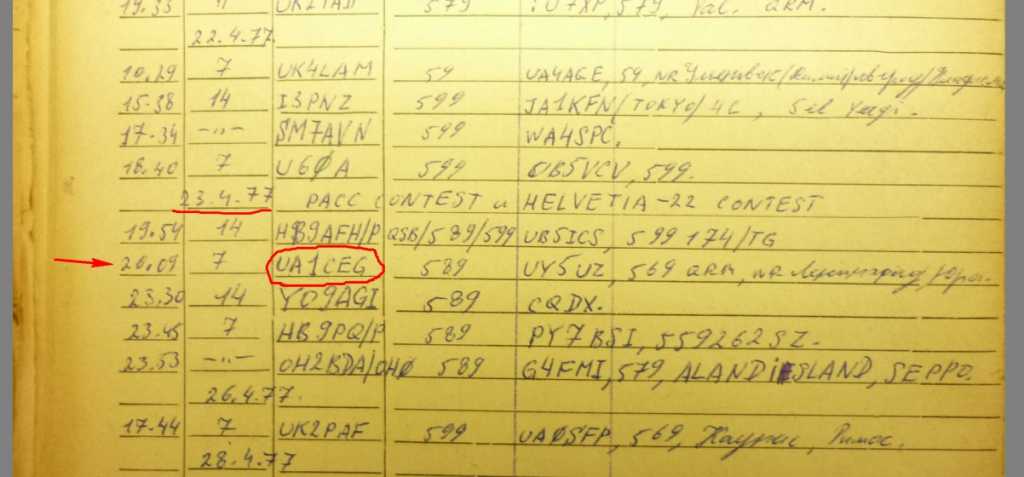 19.33 " 579 579, QRM.
22.4.77
10.29 7 UK4LAM 59 UA4AGE, 59, NR
15-38 14 I3PNZ 599 JA1KFN/TOKYO/4C, 5el Yagi.
17-34 -"- SM7AVN 599 WA4SPC.
18.40 7 U6ØA 599 OB5VCV, 599.
23.4.77 PACC CONTEST и HELVETIA-22 CONTEST
19.54 14 HB9AFH/P QSB/589/599 UB5ICS, 599 174/TG
20.09 7 UA1CEG 589 UY5UZ, 569 QRM, NR Ленинград, Юра.
23.30 14 YO9AGI 589 CQDX.
23.45 7 HB9PQ/P 589 PY7BSI, 559262SZ.
23.53 -"- OH2BDA/OHØ 589 G4FMI, 579, ALANDiESLAND, SEPPO.
26.4.77.
17.44 7 UK2PAF 599 UAØSFP, 569, Каунас, Римас.
28.4.77